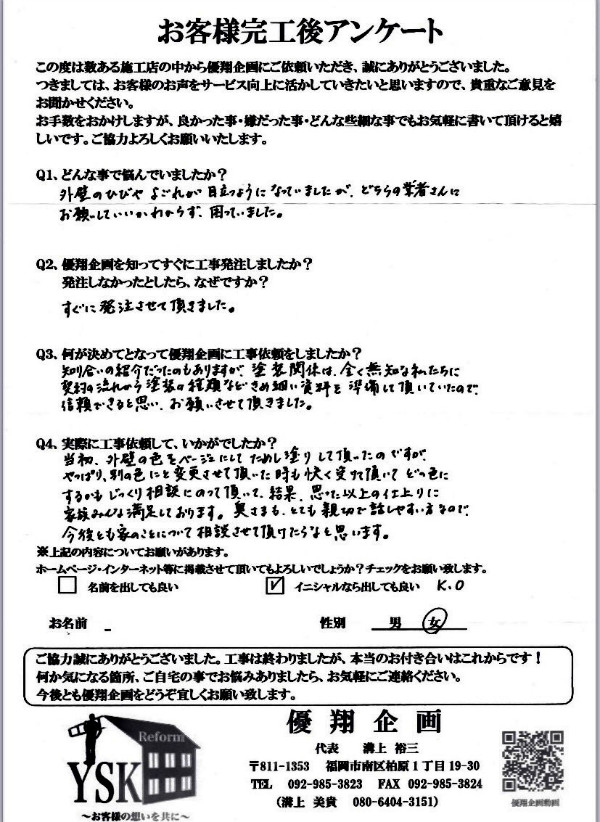 お客様完工後アンケート
この度は数ある施工店の中から優翔企画にご依頼いただき、誠にありがとうございました。
つきましては、お客様のお声をサービス向上に活かしていきたいと思いますので、貴重なご意見を
お聞かせください。
お手数をおかけしますが、良かった事・嫌だった事・どんな些細な事でもお気軽に書いて頂けると嬉
しいです。ご協力よろしくお願いいたします。
Q1、どんな事で悩んでいましたか？
外壁のひびや よごれが目立つようになっていましたが、どちらの業者さんに
お願いしていいかわからず、困っていました。
Q2、優翔企画を知ってすぐに工事発注しましたか？
発注しなかったとしたら、なぜですか？
すぐに発注させて頂きました。
Q3、何が決めてとなって優翔企画に工事依頼をしましたか？
知り合いの紹介だったのもありますが、塗装関係は、全く無知な私たちに
契約の流れから塗装の種類などきめ細い資料を準備して頂いていたので
信頼できると思い、お願いさせて頂きました。
Q4、実際に工事依頼して、いかがでしたか？
当初、外壁の色をベージュにしてためし塗りして頂いたのですが、
やっぱり、別の色にと変更させて頂いた時も快く受けて頂いて どの色に
するかもじっくり相談にのって頂いて、結果、思った以上の仕上りに
家族みんな満足しております。奥さまも、とても親切で話しやすい方なので
今後とも家のことについて相談させて頂けたらなと思います。
※上記の内容についてお願いがあります。
ホームページ・インターネット等に掲載させて頂いてもよろしいでしょうか？チェックをお願い致します。
名前を出しても良い ✓ イニシャルなら出しても良い K.O
お名前 性別 男 女
ご協力誠にありがとうございました。工事は終わりましたが、本当のお付き合いはこれからです！
何か気になる箇所、ご自宅の事でお悩みありましたら、お気軽にご連絡ください。
今後とも優翔企画をどうぞ宜しくお願い致します。
Reform
YSK
～お客様の想いを共に～
優翔企画
代表 溝上 裕三
〒811-1353 福岡市南区柏原１丁目19-30
TEL 092-985-3823 FAX 092-985-3824
（溝上 美貴 080-6404-3151）
優翔企画動画